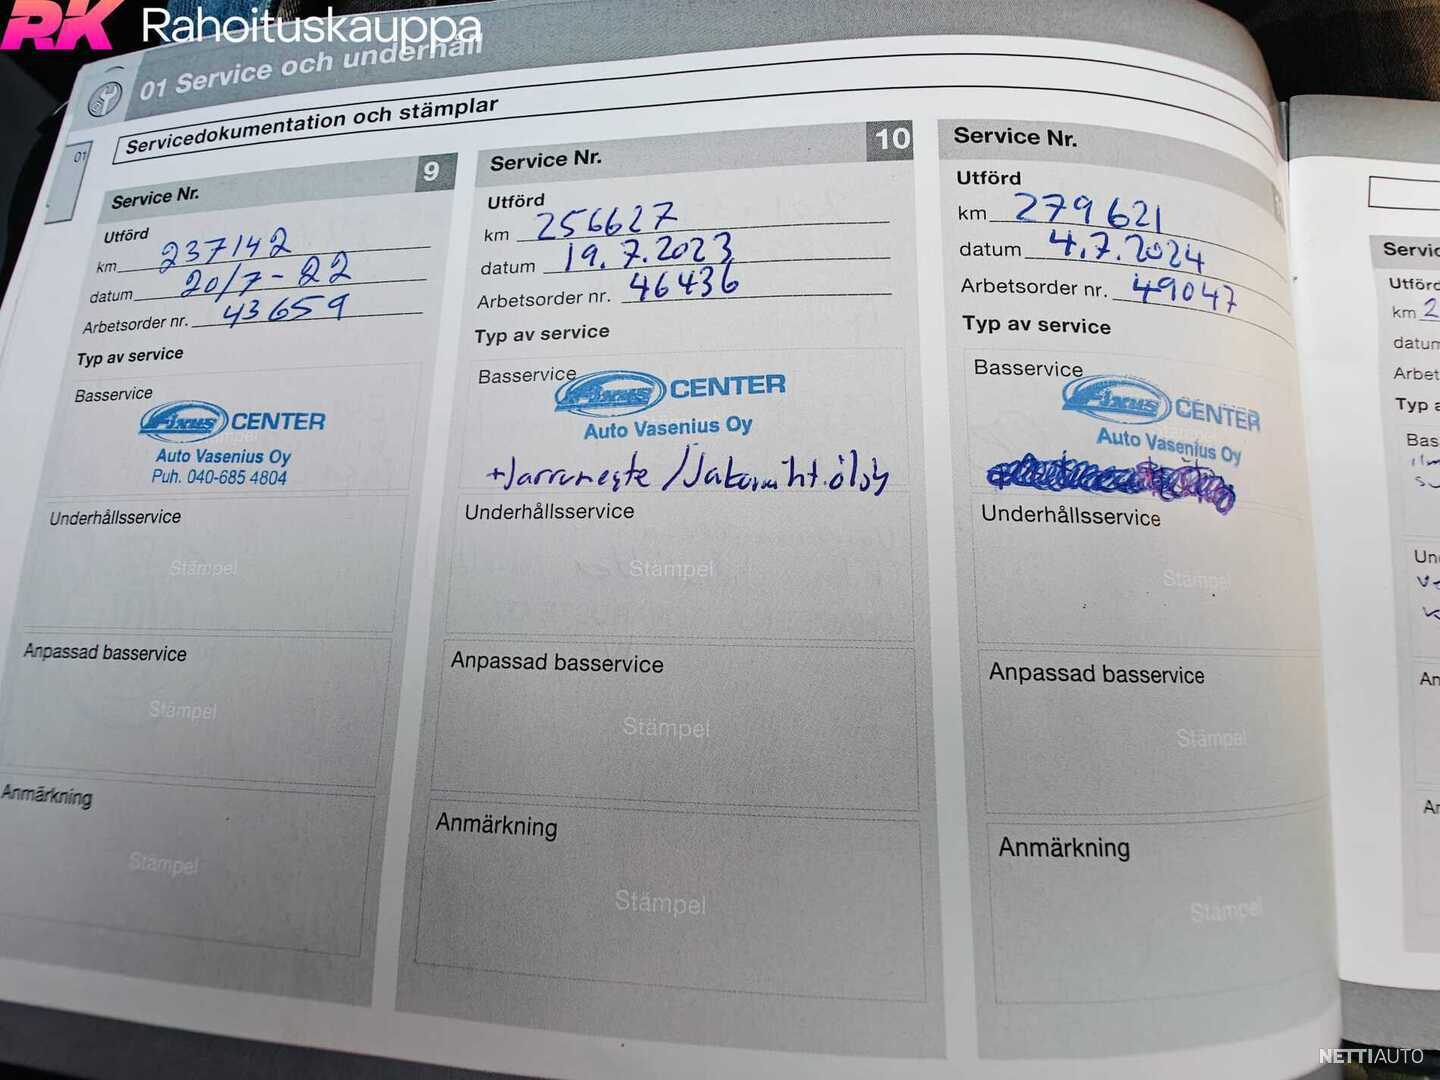 RK Rahoituskauppa
01 Service och underhåll
01
Servicedokumentation och stämplar
Service Nr. 9
Utförd
km 237142
datum 20/7-22
Arbetsorder nr. 43659
Typ av service
Basservice
Fixus CENTER
Auto Vasenius Oy
Puh. 040-685 4804
Underhållsservice
Stämpel
Anpassad basservice
Stämpel
Anmärkning
Stämpel
Service Nr. 10
Utförd
km 256627
datum 19.7.2023
Arbetsorder nr. 46436
Typ av service
Basservice
Fixus CENTER
Auto Vasenius Oy
+Jarruneste /
Underhållsservice
Stämpel
Anpassad basservice
Stämpel
Anmärkning
Stämpel
Service Nr.
Utförd
km 279621
datum 4.7.2024
Arbetsorder nr. 49047
Typ av service
Basservice
Fixus CENTER
Auto Vasenius Oy
Underhållsservice
Stämpel
Anpassad basservice
Stämpel
Anmärkning
Stämpel
Servic
Utförd
km 2
datum
Arbet
Typ a
Bas
Un
An
An
NETTIAUTO